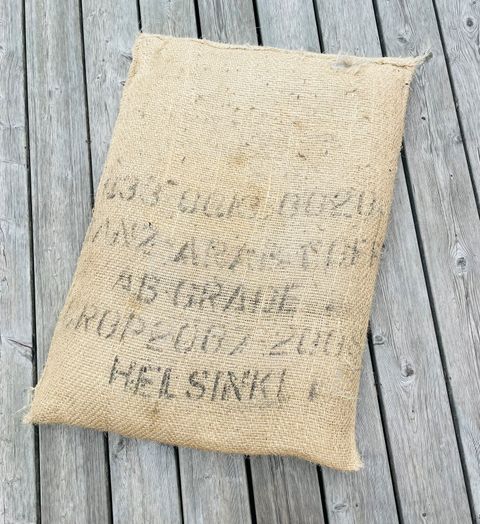 033-0010-0020
ANZ-ARAB-COFF
AB-GRADE -
CROP2007-2008
HELSINKI